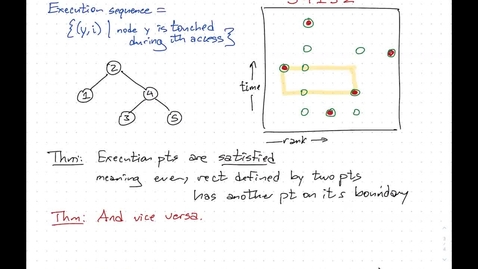 Execution sequence =
{(y,i) | node y is touched
during ith access}
2
1
4
3
5
time
rank
Thm: Execution pts are satisfied
meaning every rect defined by two pts
has another pt on it's boundary
Thm: And vice versa.